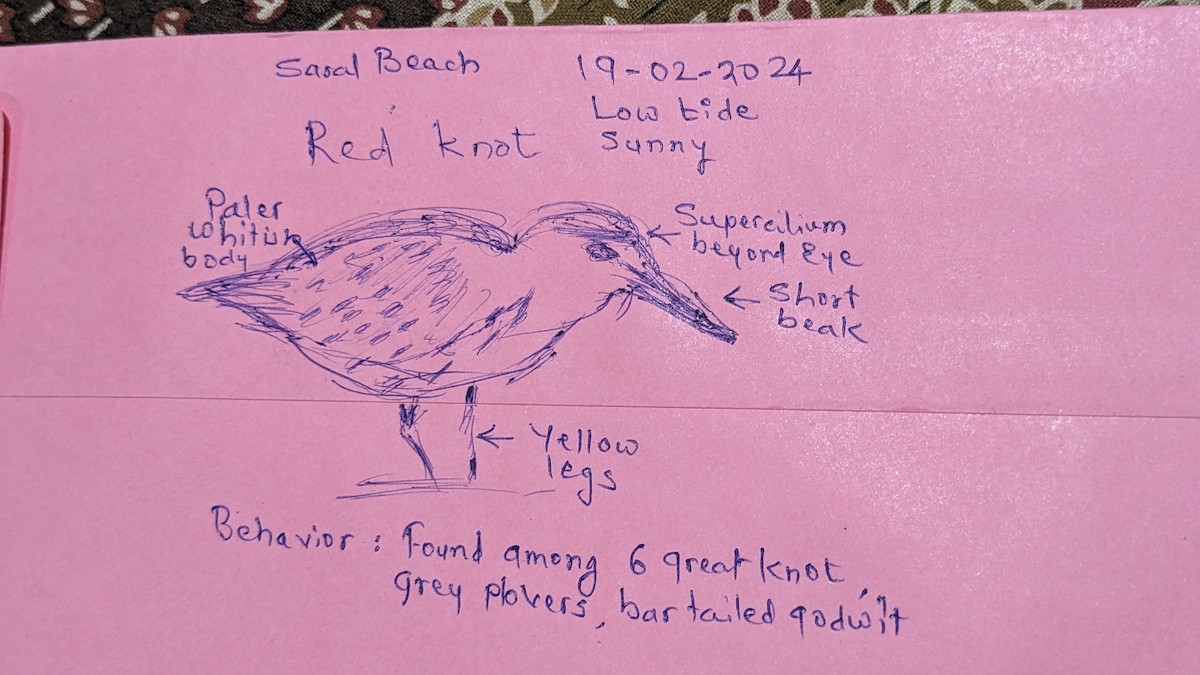 Saral Beach
19-02-2024
Low tide
Sunny
Red knot
Paler
whitish
body
Supercilium
beyond Eye
Short
beak
Yellow
legs
Behavior: Found among 6 great knot,
grey plovers, bar tailed godwit